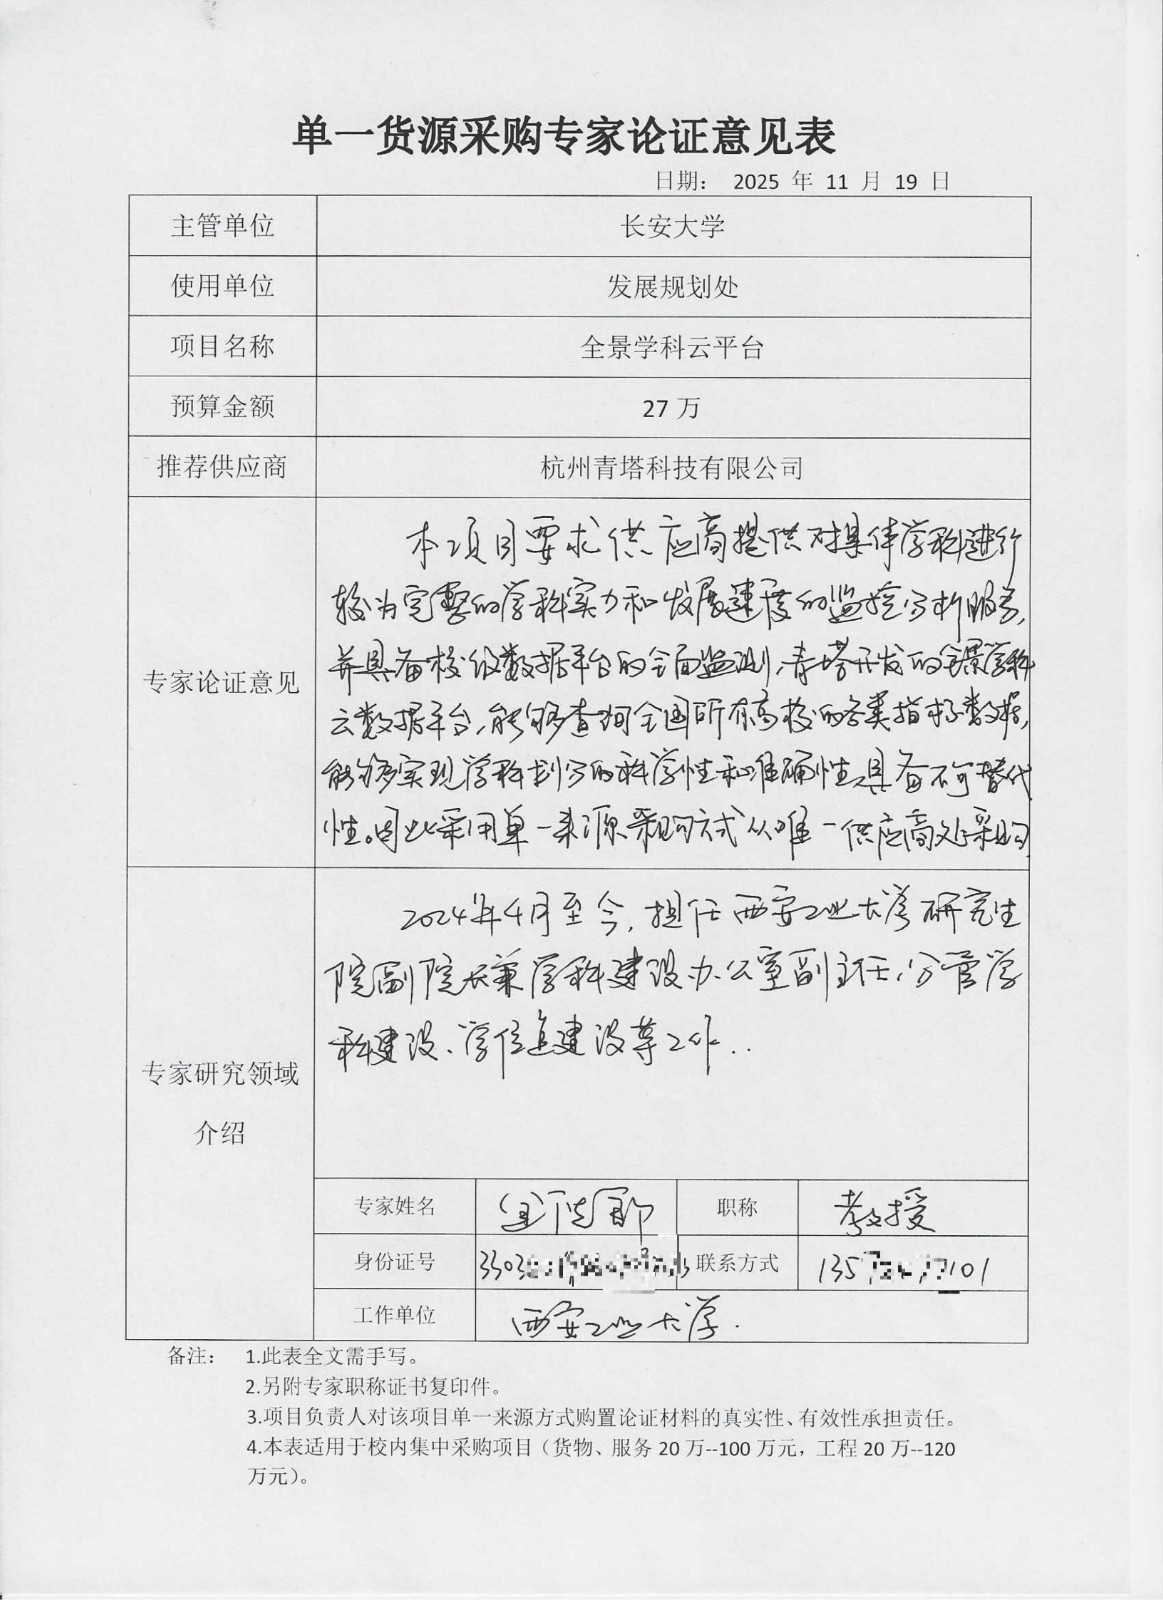 单一货源采购专家论证意见表
日期： 2025 年 11 月 19 日
主管单位 长安大学
使用单位 发展规划处
项目名称 全景学科云平台
预算金额 27 万
推荐供应商 杭州青塔科技有限公司
专家论证意见
本项目要求供应商提供对具体学科进行
较为完整的学科实力和发展速度的监控分析服务，
并具备校级数据平台的全面监测，青塔开发的全景学科
云数据平台，能够查询全国所有高校的各类指标数据，
能够实现学科划分的科学性和准确性，具备不可替代
性。因此采用单一来源采购方式从唯一供应商处采购
专家研究领域
介绍
2024年4月至今，担任西安工业大学研究生
院副院长兼学科建设办公室副主任，分管学
科建设、学位点建设等工作..
专家姓名 职称 教授
身份证号 联系方式
工作单位 西安工业大学.
备注： 1.此表全文需手写。
2.另附专家职称证书复印件。
3.项目负责人对该项目单一来源方式购置论证材料的真实性、有效性承担责任。
4.本表适用于校内集中采购项目（货物、服务 20 万--100 万元，工程 20 万--120
万元）。